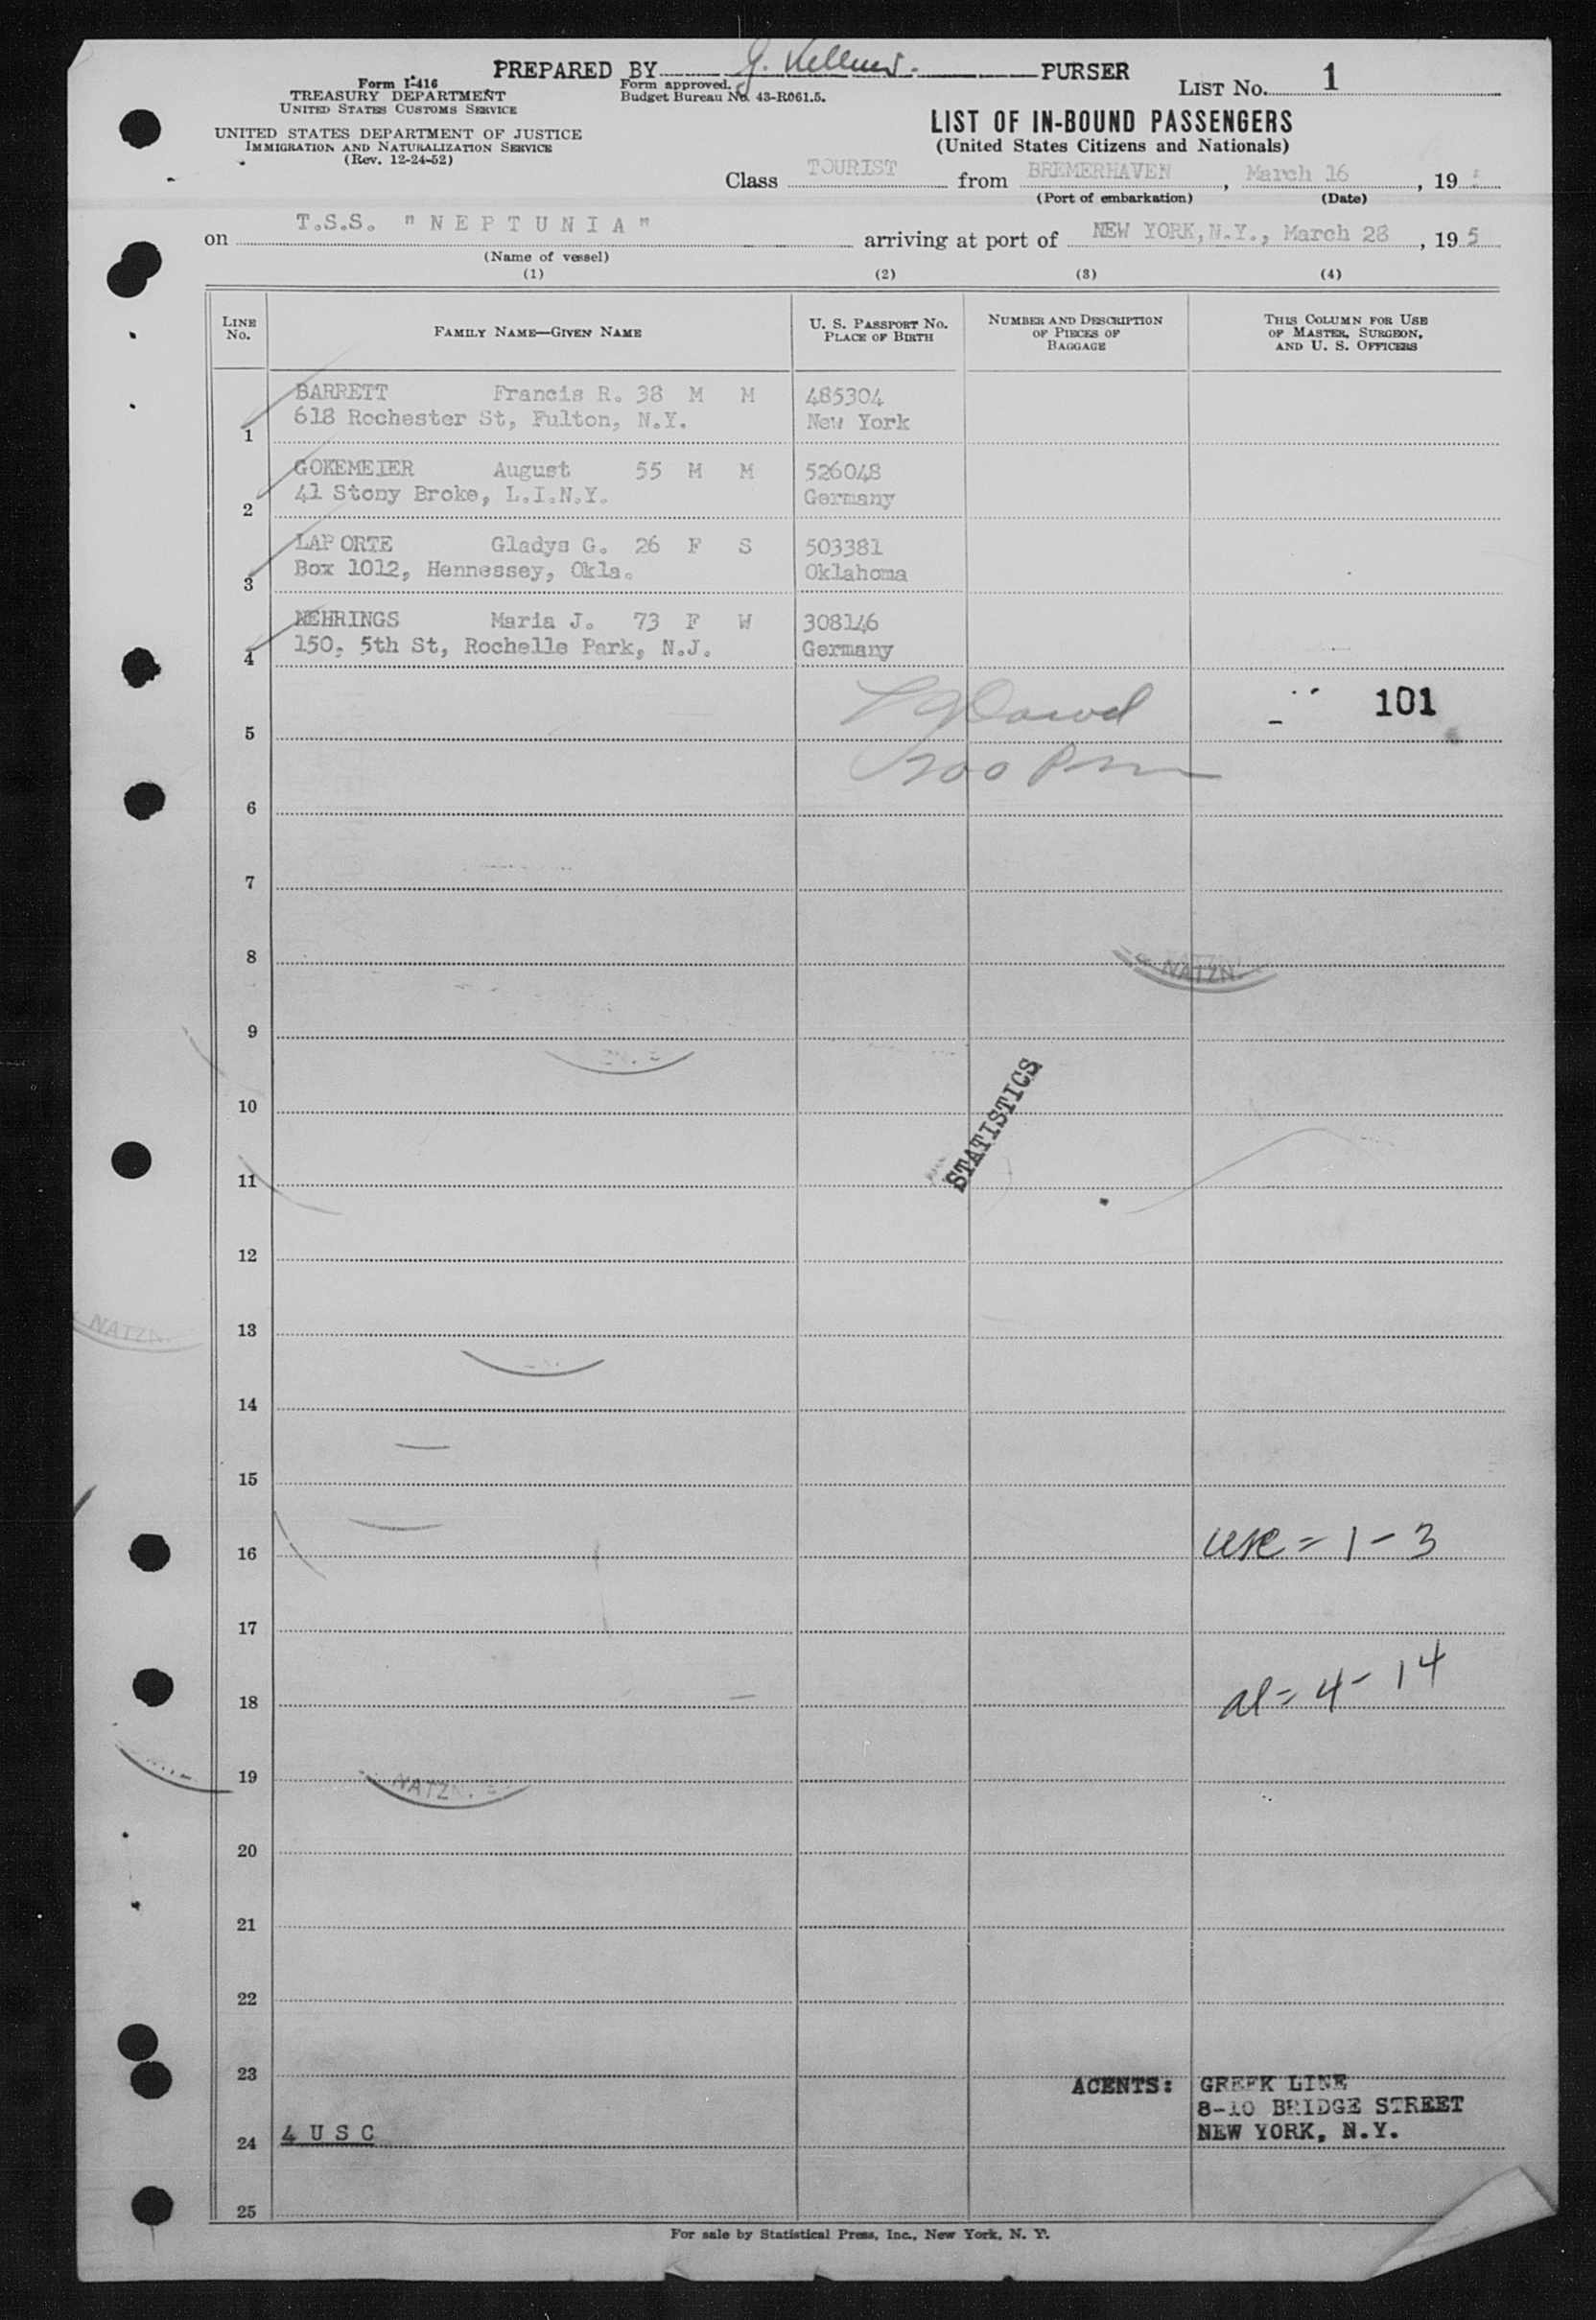 PREPARED BY J. Kellner. PURSER
Form I-416
TREASURY DEPARTMENT
UNITED STATES CUSTOMS SERVICE
Form approved.
Budget Bureau No. 43-R061.5.
LIST NO. 1
UNITED STATES DEPARTMENT OF JUSTICE
IMMIGRATION AND NATURALIZATION SERVICE
(Rev. 12-24-52)
LIST OF IN-BOUND PASSENGERS
(United States Citizens and Nationals)
Class TOURIST from BREMERHAVEN, March 16, 19
(Port of embarkation) (Date)
on T.S.S. "NEPTUNIA" arriving at port of NEW YORK, N.Y., March 28, 195
(Name of vessel)
(1) (2) (3) (4)
LINE NO.
FAMILY NAME—GIVEN NAME
U. S. PASSPORT NO.
PLACE OF BIRTH
NUMBER AND DESCRIPTION
OF PIECES OF
BAGGAGE
THIS COLUMN FOR USE
OF MASTER, SURGEON,
AND U. S. OFFICERS
BARRETT Francis R. 38 M M 485304
1 618 Rochester St, Fulton, N.Y. New York
GOKEMEIER August 55 M M 526048
2 41 Stony Broke, L.I.N.Y. Germany
LAPORTE Gladys G. 26 F S 503381
3 Box 1012, Hennessey, Okla. Oklahoma
NEHRINGS Maria J. 73 F W 308146
4 150, 5th St, Rochelle Park, N.J. Germany
101
5
200 Pm
6
7
8
NATZN.
9
10
STATISTICS
11
12
NATZN.
13
14
15
16 usc = 1 - 3
17
18 al = 4 - 14
19
NATZN.
20
21
22
23
AGENTS: GREEK LINE
8-10 BRIDGE STREET
24 4 U S C NEW YORK, N.Y.
25
For sale by Statistical Press, Inc., New York, N. Y.